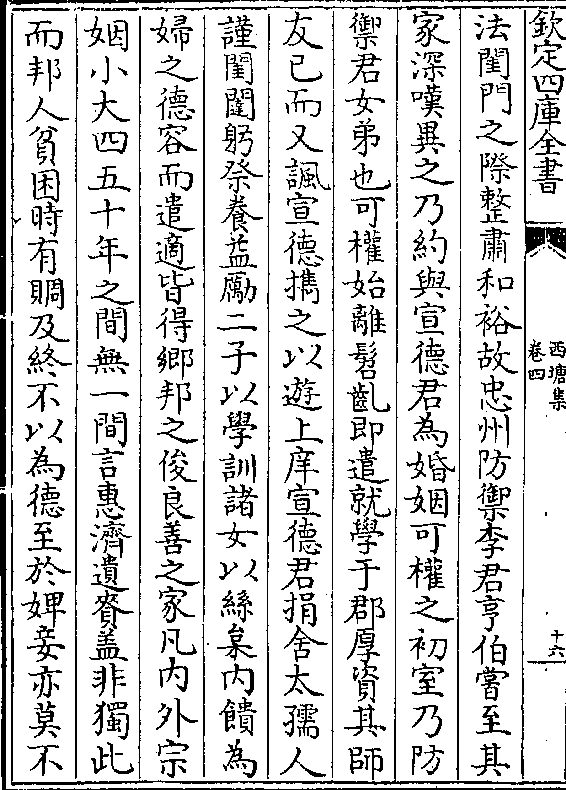 欽定四庫全書
西塘集
卷四
十六
法閨門之際整肅和裕故忠州防禦李君亨伯嘗至其
家深嘆異之乃約與宣德君為婚姻可權之初室乃防
禦君女弟也可權始離髫齓即遣就學于郡厚資其師
友已而又諷宣德㩦之以遊上庠宣德君捐舍太孺人
謹閨闥躬祭養益勵二子以學訓諸女以絲枲内饋為
婦之德容而遣適皆得鄉邦之俊良善之家凡内外宗
姻小大四五十年之間無一間言惠濟遺賚盖非獨此
而邦人貧困時有賙及終不以為德至於婢妾亦莫不